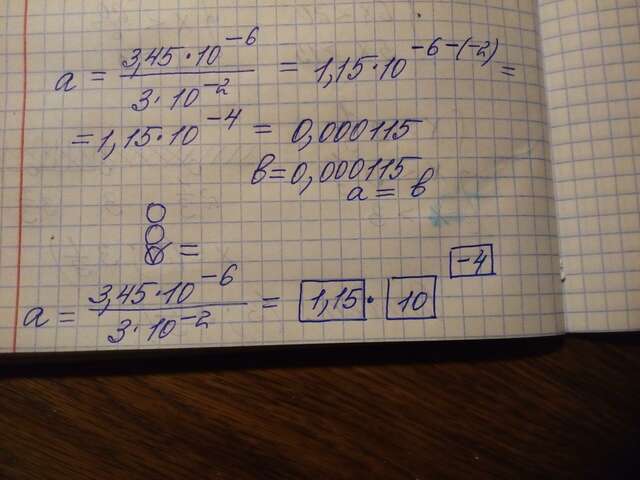 a = 3,45·10⁻⁶ / 3·10⁻² = 1,15·10⁻⁶⁻⁽⁻²⁾ =
= 1,15·10⁻⁴ = 0,000115
в = 0,000115
a = в
=
a = 3,45·10⁻⁶ / 3·10⁻² = 1,15 · 10 ⁻⁴